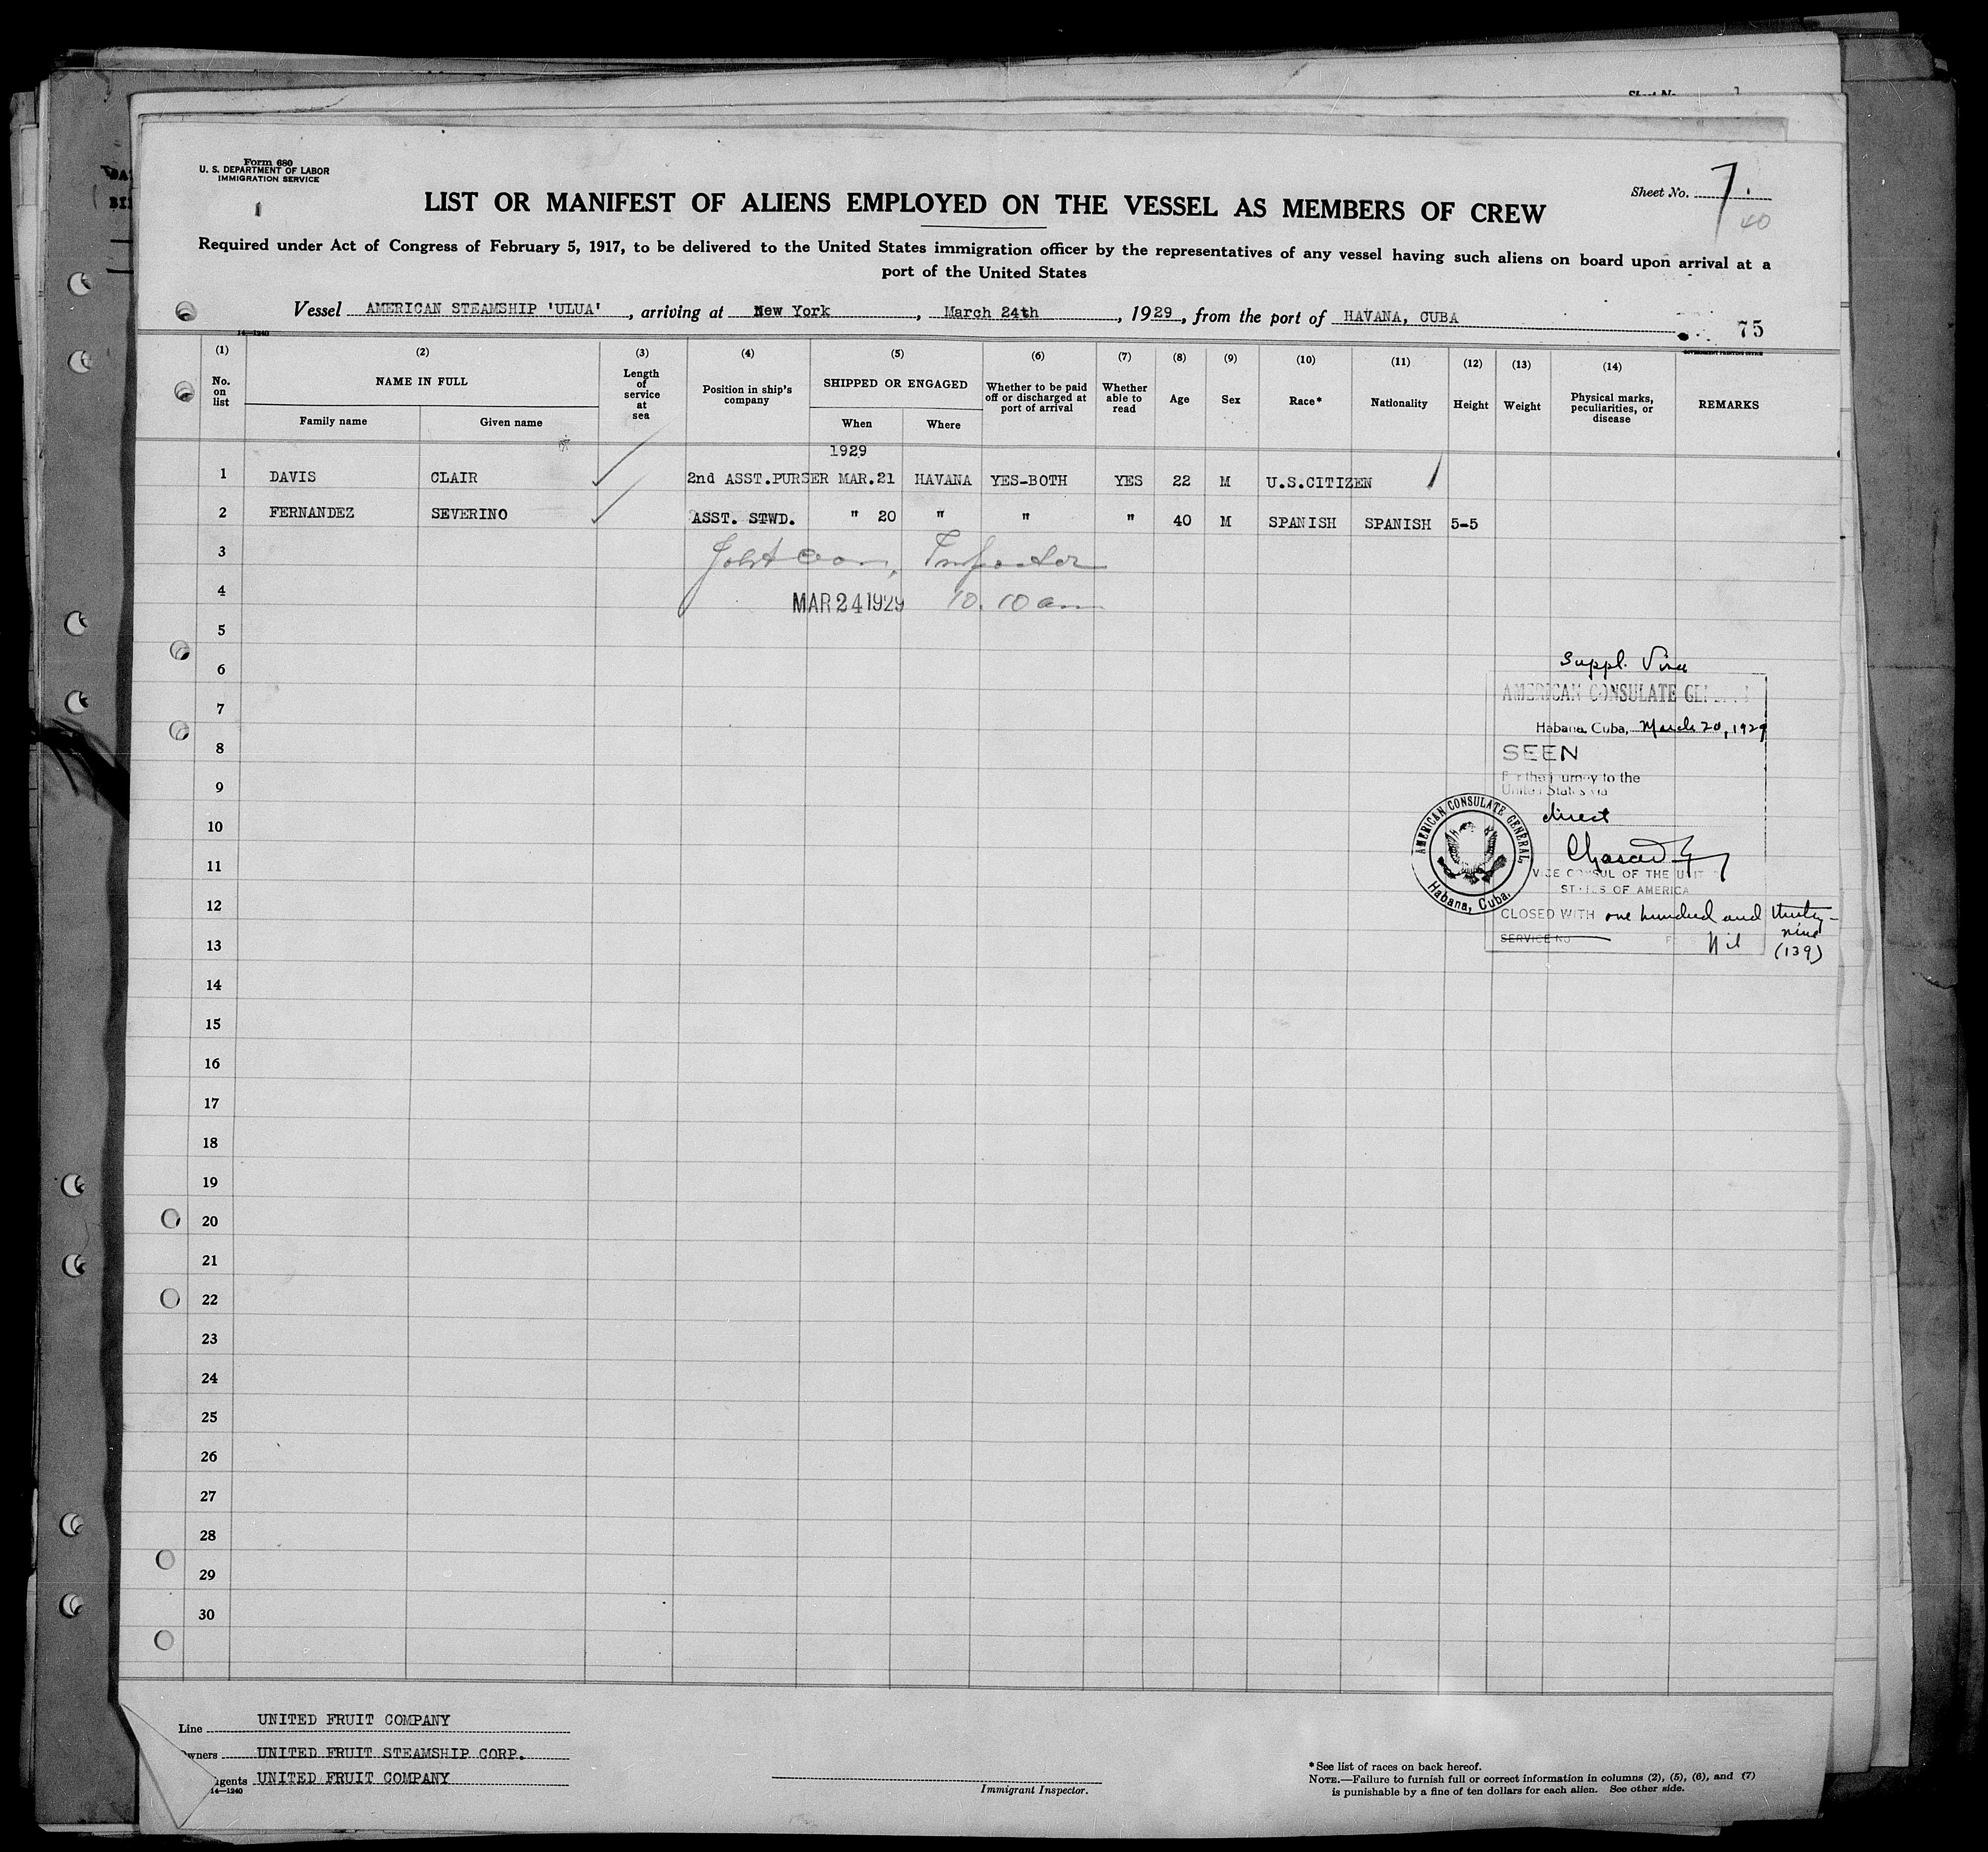 Form 680
U. S. DEPARTMENT OF LABOR
IMMIGRATION SERVICE
Sheet No. 7.
40
LIST OR MANIFEST OF ALIENS EMPLOYED ON THE VESSEL AS MEMBERS OF CREW
Required under Act of Congress of February 5, 1917, to be delivered to the United States immigration officer by the representatives of any vessel having such aliens on board upon arrival at a
port of the United States
Vessel AMERICAN STEAMSHIP 'ULUA', arriving at New York, March 24th, 1929, from the port of HAVANA, CUBA
14—1240
75
GOVERNMENT PRINTING OFFICE
(1) (2) (3) (4) (5) (6) (7) (8) (9) (10) (11) (12) (13) (14)
No. on list
NAME IN FULL
Family name Given name
Length of service at sea
Position in ship's company
SHIPPED OR ENGAGED
When Where
Whether to be paid off or discharged at port of arrival
Whether able to read
Age
Sex
Race*
Nationality
Height
Weight
Physical marks, peculiarities, or disease
REMARKS
1929
1 DAVIS CLAIR 2nd ASST.PURSER MAR.21 HAVANA YES-BOTH YES 22 M U.S.CITIZEN
2 FERNANDEZ SEVERINO ASST. STWD. " 20 " " " 40 M SPANISH SPANISH 5-5
3 Inspector
4 MAR 24 1929 10.10 am
5
6
7
8
9
10
11
12
13
14
15
16
17
18
19
20
21
22
23
24
25
26
27
28
29
30
Suppl. Visa
AMERICAN CONSULATE GENERAL
Habana, Cuba, March 20, 1929
SEEN
For the journey to the
United States via
direct
VICE CONSUL OF THE UNITED
STATES OF AMERICA
CLOSED WITH one hundred and thirty-
nine
(139)
SERVICE NO
Nil
AMERICAN CONSULATE GENERAL,
Habana, Cuba.
Line UNITED FRUIT COMPANY
Owners UNITED FRUIT STEAMSHIP CORP.
Agents UNITED FRUIT COMPANY
14—1240
Immigrant Inspector.
*See list of races on back hereof.
NOTE.—Failure to furnish full or correct information in columns (2), (5), (6), and (7)
is punishable by a fine of ten dollars for each alien. See other side.